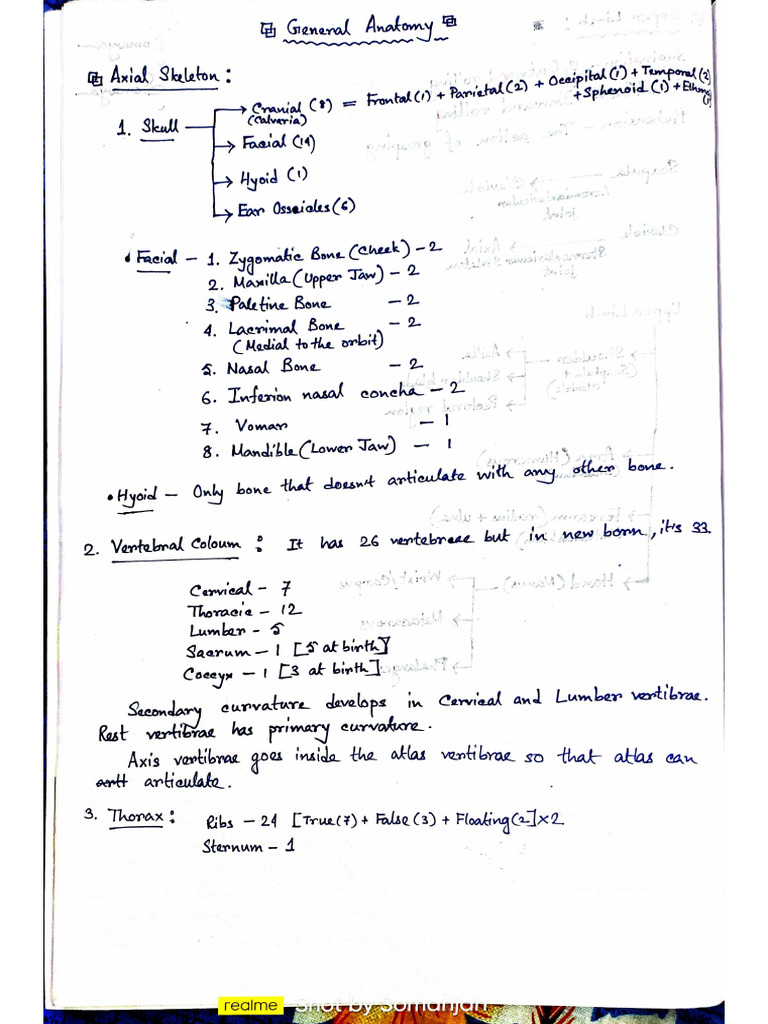 General Anatomy
Axial Skeleton :
1. Skull → Cranial (8) = Frontal (1) + Parietal (2) + Occipital (1) + Temporal (2)
(Calveria) + Sphenoid (1) + Ethmo
(1)
→ Facial (14)
→ Hyoid (1)
→ Ear Ossicles (6)
• Facial – 1. Zygomatic Bone (Cheek) – 2
2. Maxilla (Upper Jaw) – 2
3. Paletine Bone – 2
4. Lacrimal Bone – 2
(Medial to the orbit)
5. Nasal Bone – 2
6. Inferior nasal concha – 2
7. Vomar – 1
8. Mandible (Lower Jaw) – 1
• Hyoid – Only bone that doesn't articulate with any other bone.
2. Vertebral Coloum : It has 26 vertebreae but in new born, it's 33.
Cervical – 7
Thoracic – 12
Lumber – 5
Sacrum – 1 [5 at birth]
Coccyx – 1 [3 at birth]
Secondary curvature develops in Cervical and Lumber vertibrae.
Rest vertibrae has primary curvature.
Axis vertibrae goes inside the atlas vertibrae so that atlas can
artt articulate.
3. Thorax : Ribs – 24 [True (7) + False (3) + Floating (2] × 2
Sternum – 1
realme Shot by Somanjan